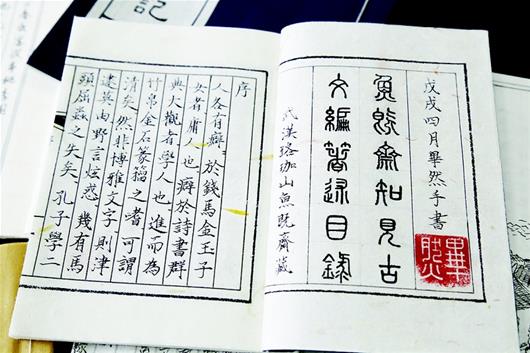 記
戊戌四月畢然手書
魚既齋知見古
文編著录目錄
武漢珞珈山魚既齋藏
序
人各有癖。於錢馬金玉子
女者庸人也。癖於詩書群
典大觀者學人也。進而為
竹帛金石篆籀之者可謂
清矣。然非博雅文字、則津
逮莫由、野言炫惑、幾有馬
頭屈蟲之失矣。孔子學二